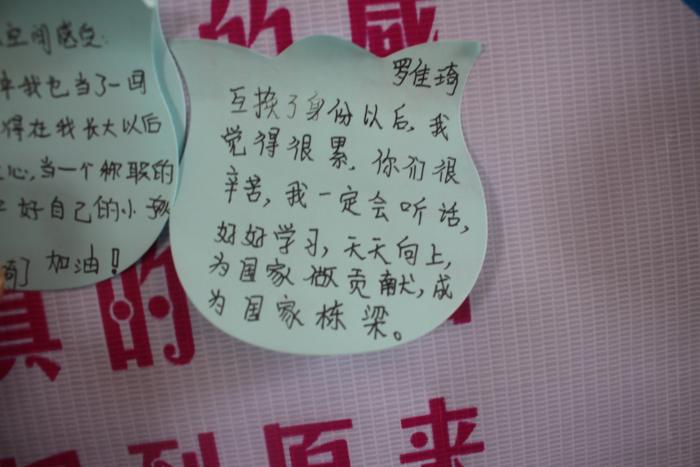 的感
空间感受:
我也当了一回
得在我长大以后
心,当一个称职的
好自己的小孩
们加油!
罗佳琦
互换了身份以后,我
觉得很累,你们很
辛苦,我一定会听话,
好好学习,天天向上,
为国家做贡献,成
为国家栋梁。
真的
到原来